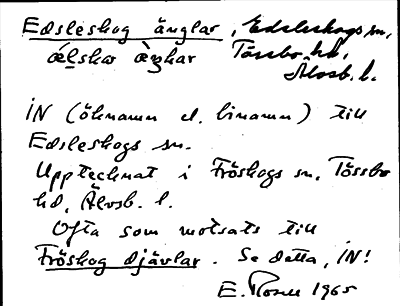 Edsleskog änglar, Edsleskogs sn,
Tössbo hd,
Älvsb. l.
IN (öknamn el. binamn) till
Edsleskogs sn.
Upptecknat i Fröskogs sn, Tössbo
hd, Älvsb. l.
Ofta som motsats till
Fröskog djävlar. Se detta, IN!
E. Rosell 1965